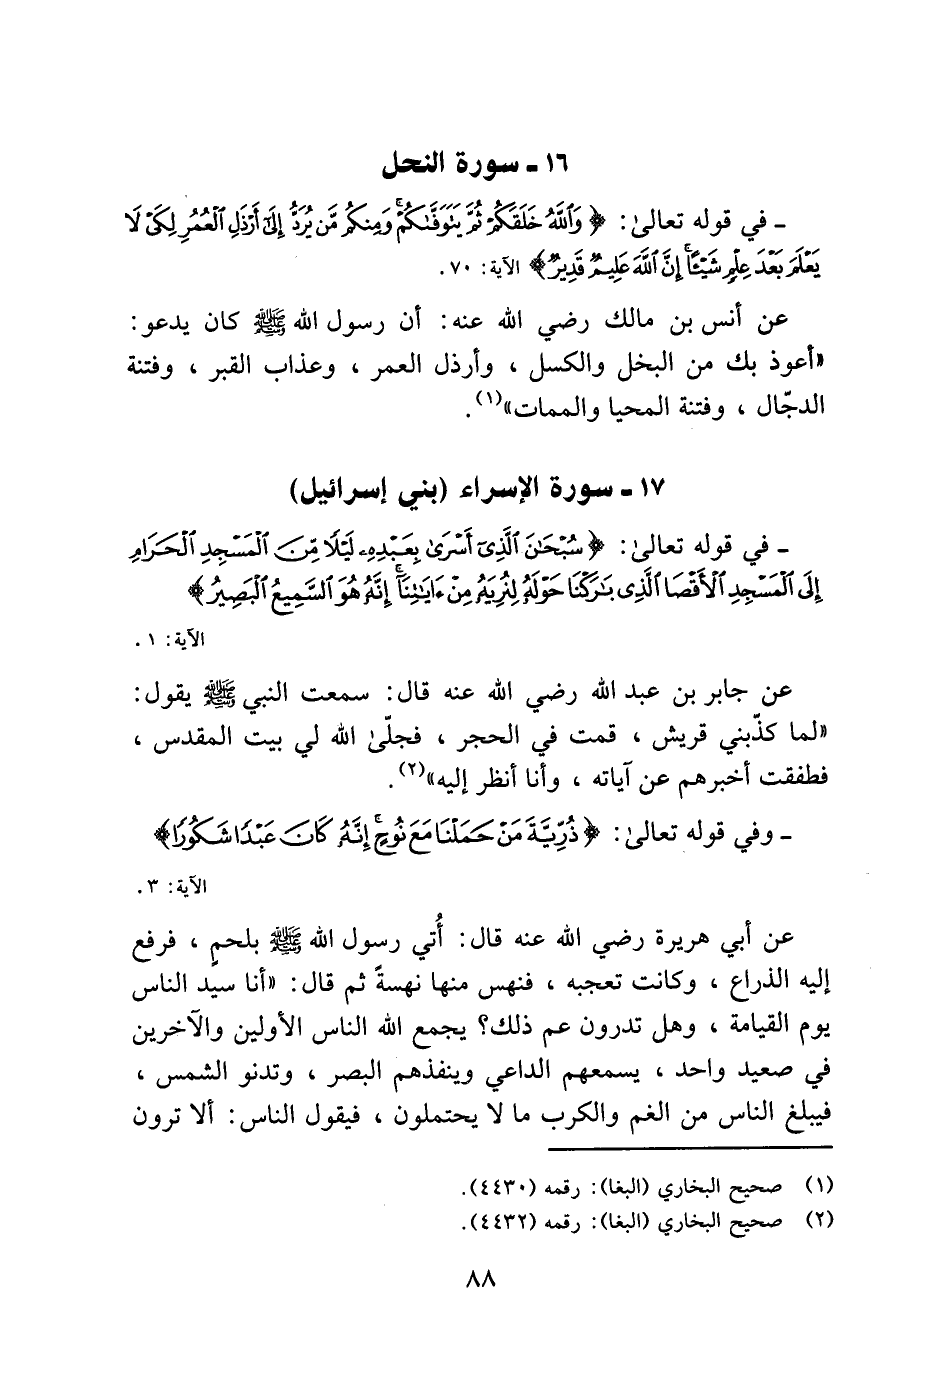 ١٦ ـ سورة النحل
ـ في قوله تعالىٰ: ﴿ وَٱللَّهُ خَلَقَكُمْ ثُمَّ يَتَوَفَّىٰكُمْ ۚ وَمِنكُم مَّن يُرَدُّ إِلَىٰٓ أَرْذَلِ ٱلْعُمُرِ لِكَىْ لَا
يَعْلَمَ بَعْدَ عِلْمٍ شَيْـًٔا ۚ إِنَّ ٱللَّهَ عَلِيمٌ قَدِيرٌ ﴾ الآية: ٧٠ .
عن أنس بن مالك رضي الله عنه: أن رسول الله ﷺ كان يدعو:
«أعوذ بك من البخل والكسل ، وأرذل العمر ، وعذاب القبر ، وفتنة
الدجّال ، وفتنة المحيا والممات»(١).
١٧ ـ سورة الإسراء (بني إسرائيل)
ـ في قوله تعالىٰ: ﴿ سُبْحَٰنَ ٱلَّذِىٓ أَسْرَىٰ بِعَبْدِهِۦ لَيْلًا مِّنَ ٱلْمَسْجِدِ ٱلْحَرَامِ
إِلَى ٱلْمَسْجِدِ ٱلْأَقْصَا ٱلَّذِى بَٰرَكْنَا حَوْلَهُۥ لِنُرِيَهُۥ مِنْ ءَايَٰتِنَآ ۚ إِنَّهُۥ هُوَ ٱلسَّمِيعُ ٱلْبَصِيرُ ﴾
الآية: ١ .
عن جابر بن عبد الله رضي الله عنه قال: سمعت النبي ﷺ يقول:
«لما كذّبني قريش ، قمت في الحجر ، فجلّىٰ الله لي بيت المقدس ،
فطفقت أخبرهم عن آياته ، وأنا أنظر إليه»(٢).
ـ وفي قوله تعالىٰ: ﴿ ذُرِّيَّةَ مَنْ حَمَلْنَا مَعَ نُوحٍ ۚ إِنَّهُۥ كَانَ عَبْدًا شَكُورًا ﴾
الآية: ٣ .
عن أبي هريرة رضي الله عنه قال: أُتي رسول الله ﷺ بلحمٍ ، فرفع
إليه الذراع ، وكانت تعجبه ، فنهس منها نهسةً ثم قال: «أنا سيد الناس
يوم القيامة ، وهل تدرون عم ذلك؟ يجمع الله الناس الأولين والآخرين
في صعيد واحد ، يسمعهم الداعي وينفذهم البصر ، وتدنو الشمس ،
فيبلغ الناس من الغم والكرب ما لا يحتملون ، فيقول الناس: ألا ترون
(١) صحيح البخاري (البغا): رقمه (٤٤٣٠).
(٢) صحيح البخاري (البغا): رقمه (٤٤٣٢).
٨٨